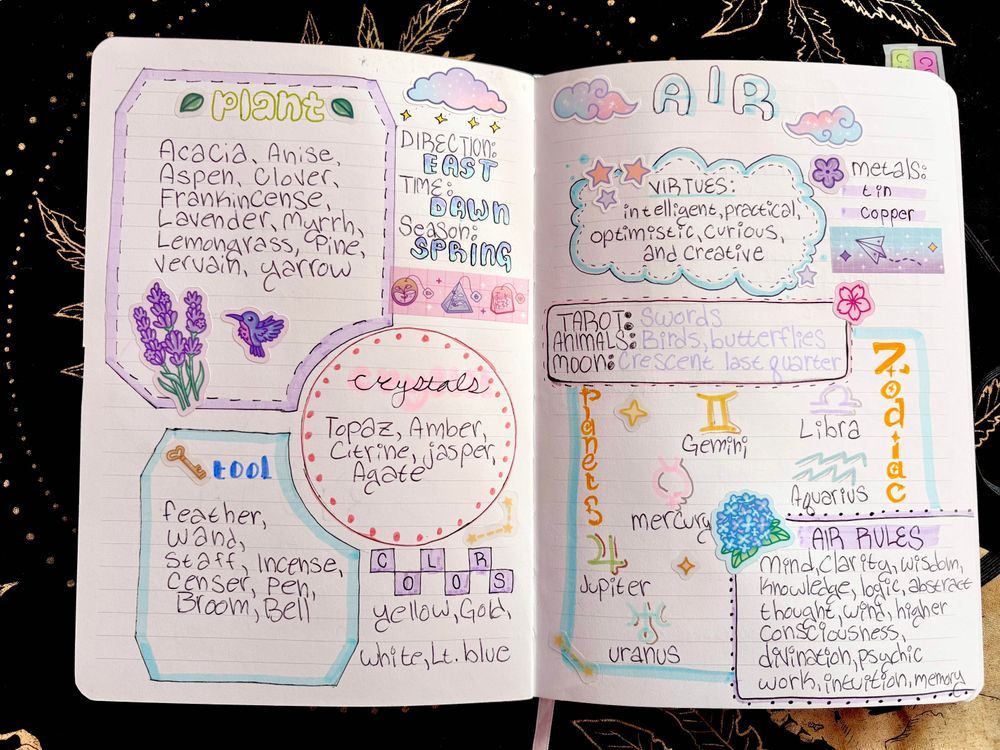 plant
Acacia, Anise,
Aspen, Clover,
Frankincense,
Lavender, Myrrh,
Lemongrass, Pine,
vervain, yarrow
DIRECTION:
EAST
TIME:
DAWN
Season:
SPRING
crystals
Topaz, Amber,
Citrine, jasper,
Agate
tool
feather,
wand,
Staff, Incense,
Censer, Pen,
Broom, Bell
COLORS
yellow, Gold,
white, Lt. blue
AIR
VIRTUES:
intelligent, practical,
optimistic, curious,
and creative
metals:
tin
copper
TAROT: Swords
ANIMALS: Birds, butterflies
MOON: Crescent last quarter
Planets
mercury
Jupiter
uranus
Zodiac
Gemini
Libra
Aquarius
AIR RULES
Mind, Clarity, wisdom,
knowledge, logic, abstract
thought, wind, higher
consciousness,
divination, psychic
work, intuition, memory